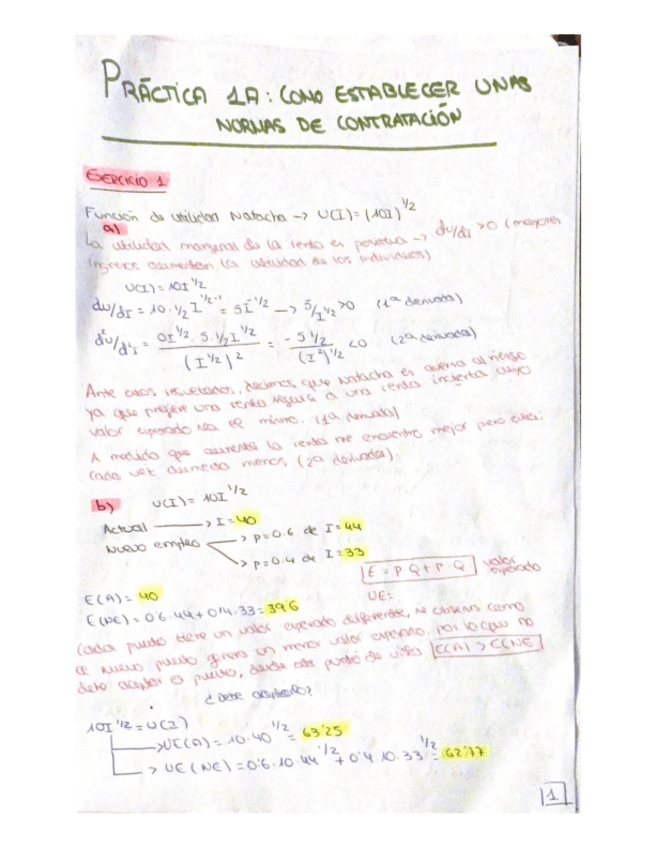 PRÁCTICA 1A: COMO ESTABLECER UNAS
NORMAS DE CONTRATACIÓN
EJERCICIO 1
Función de utilidad Natacha -> U(I) = (10I)^1/2
a)
La utilidad marginal de la renta es positiva -> du/dI >0 (mayores
ingresos aumentan la utilidad de los individuos)
U(I) = 10I^1/2
du/dI = 10·1/2 I^1/2-1 = 5I^-1/2 -> 5/I^1/2 >0 (1ª derivada)
d²u/d²I = 0I^1/2 · 5·1/2 I^1/2 / (I^1/2)^2 = -5 1/2 / (I²)^1/2 <0 (2ª derivada)
Ante estos resultados, decimos que Natacha es aversa al riesgo
ya que prefiere una renta segura a una renta incierta cuyo
valor esperado sea el mismo. (1ª derivada)
A medida que aumenta la renta me encuentro mejor pero esta
cada vez aumenta menos (2ª derivada).
b) U(I) = 10I^1/2
Actual -> I = 40
Nuevo empleo -> p=0.6 de I = 44
-> p=0.4 de I = 33
E = P·Q + P·Q valor esperado
UE=
E(A) = 40
E(NE) = 0'6·44 + 0'4·33 = 39'6
Cada puesto tiene un valor esperado diferente, se observa como
el nuevo puesto genera un menor valor esperado, por lo que no
debe aceptar el puesto, desde este punto de vista E(A) > E(NE)
¿Debe aceptarlo?
10I^1/2 = U(I)
-> UE(A) = 10·40^1/2 = 63'25
-> UE(NE) = 0'6·10·44^1/2 + 0'4·10·33^1/2 = 62'77
1